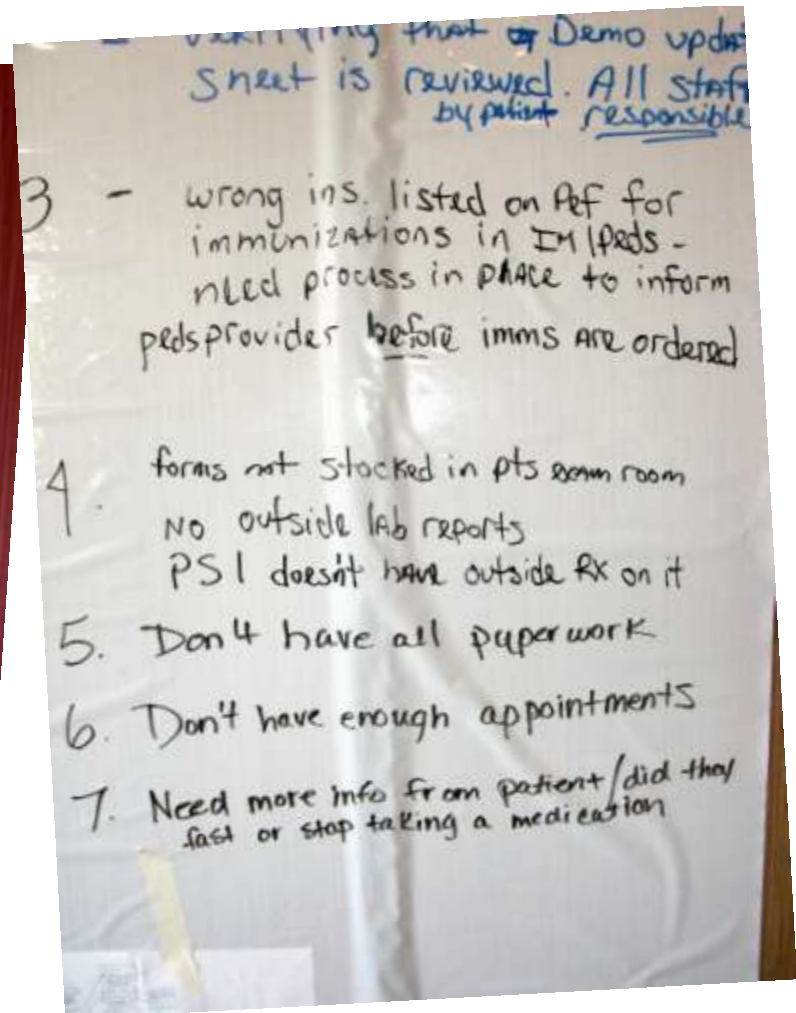 - verifying that Demo updat
sheet is reviewed. All staff
by patient responsible
3 - wrong ins. listed on Pef for
immunizations in IM/Peds -
need process in place to inform
peds provider before imms are ordered
4. forms not stocked in pts exam room
No outside lab reports
PSI doesn't have outside RX on it
5. Don't have all paperwork
6. Don't have enough appointments
7. Need more info from patient/did they
fast or stop taking a medication